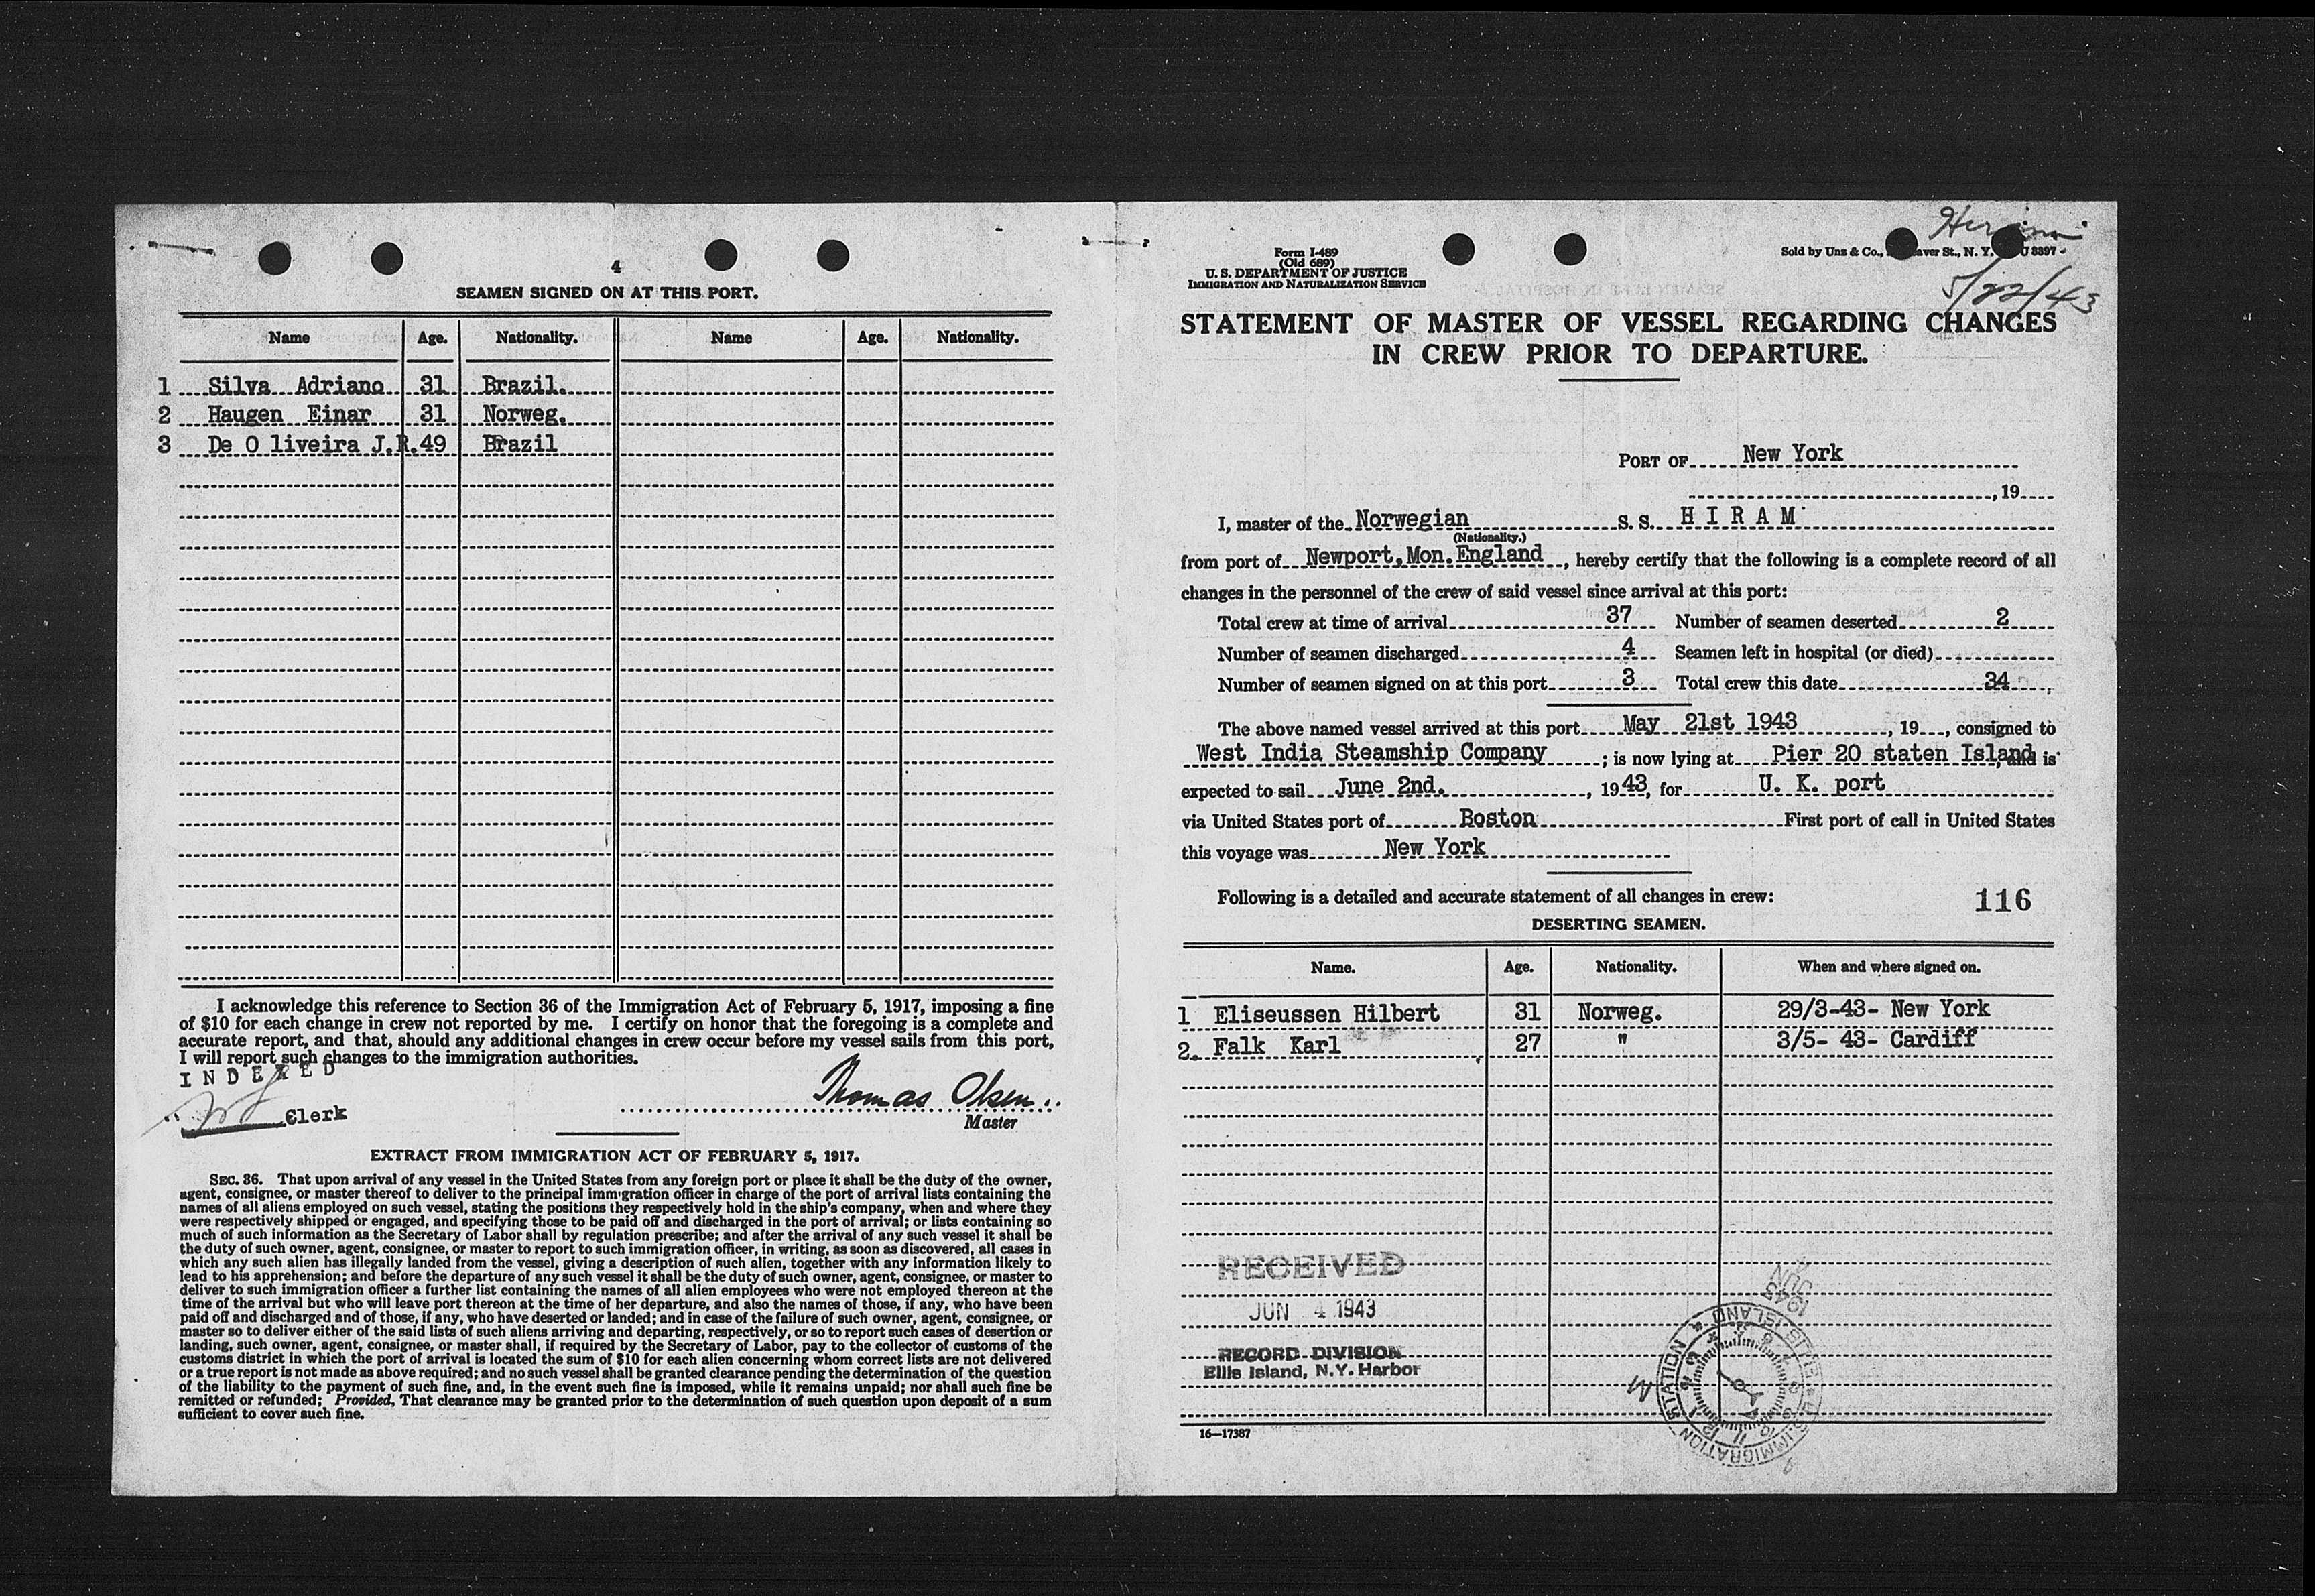 4
SEAMEN SIGNED ON AT THIS PORT.
Name Age. Nationality. Name Age. Nationality.
1 Silva Adriano 31 Brazil.
2 Haugen Einar 31 Norweg.
3 De O liveira J.R. 49 Brazil
I acknowledge this reference to Section 36 of the Immigration Act of February 5, 1917, imposing a fine
of $10 for each change in crew not reported by me. I certify on honor that the foregoing is a complete and
accurate report, and that, should any additional changes in crew occur before my vessel sails from this port,
I will report such changes to the immigration authorities.
INDEXED
Clerk
Thomas Olsen
Master
EXTRACT FROM IMMIGRATION ACT OF FEBRUARY 5, 1917.
SEC. 36. That upon arrival of any vessel in the United States from any foreign port or place it shall be the duty of the owner,
agent, consignee, or master thereof to deliver to the principal immigration officer in charge of the port of arrival lists containing the
names of all aliens employed on such vessel, stating the positions they respectively hold in the ship's company, when and where they
were respectively shipped or engaged, and specifying those to be paid off and discharged in the port of arrival; or lists containing so
much of such information as the Secretary of Labor shall by regulation prescribe; and after the arrival of any such vessel it shall be
the duty of such owner, agent, consignee, or master to report to such immigration officer, in writing, as soon as discovered, all cases in
which any such alien has illegally landed from the vessel, giving a description of such alien, together with any information likely to
lead to his apprehension; and before the departure of any such vessel it shall be the duty of such owner, agent, consignee, or master to
deliver to such immigration officer a further list containing the names of all alien employees who were not employed thereon at the
time of the arrival but who will leave port thereon at the time of her departure, and also the names of those, if any, who have been
paid off and discharged and of those, if any, who have deserted or landed; and in case of the failure of such owner, agent, consignee, or
master so to deliver either of the said lists of such aliens arriving and departing, respectively, or so to report such cases of desertion or
landing, such owner, agent, consignee, or master shall, if required by the Secretary of Labor, pay to the collector of customs of the
customs district in which the port of arrival is located the sum of $10 for each alien concerning whom correct lists are not delivered
or a true report is not made as above required; and no such vessel shall be granted clearance pending the determination of the question
of the liability to the payment of such fine, and, in the event such fine is imposed, while it remains unpaid; nor shall such fine be
remitted or refunded; Provided, That clearance may be granted prior to the determination of such question upon deposit of a sum
sufficient to cover such fine.
Form I-489
(Old 689)
U. S. DEPARTMENT OF JUSTICE
IMMIGRATION AND NATURALIZATION SERVICE
Sold by Uns & Co., aver St., N. Y. U 3397
5/22/43
STATEMENT OF MASTER OF VESSEL REGARDING CHANGES
IN CREW PRIOR TO DEPARTURE.
PORT OF New York
, 19
I, master of the Norwegian S. S. H I R A M
(Nationality.)
from port of Newport, Mon. England , hereby certify that the following is a complete record of all
changes in the personnel of the crew of said vessel since arrival at this port:
Total crew at time of arrival 37 Number of seamen deserted 2
Number of seamen discharged 4 Seamen left in hospital (or died)
Number of seamen signed on at this port 3 Total crew this date 34
The above named vessel arrived at this port May 21st 1943 , 19 , consigned to
West India Steamship Company ; is now lying at Pier 20 staten Island, and is
expected to sail June 2nd. , 1943, for U. K. port
via United States port of Boston First port of call in United States
this voyage was New York
Following is a detailed and accurate statement of all changes in crew: 116
DESERTING SEAMEN.
Name. Age. Nationality. When and where signed on.
1 Eliseussen Hilbert 31 Norweg. 29/3-43- New York
2. Falk Karl 27 " 3/5- 43- Cardiff
RECEIVED
JUN 4 1943
RECORD DIVISION
Ellis Island, N.Y. Harbor
JUN 1943
U.S. IMMIGRATION STATION * ELLIS ISLAND *
M
16—17387